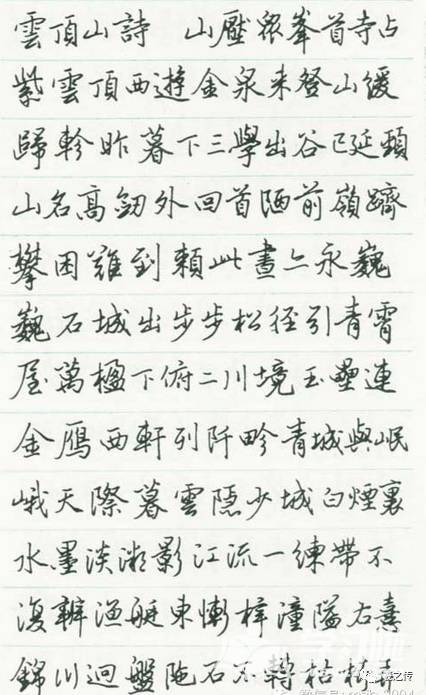 雲頂山詩 山壓衆峯首寺占
紫雲頂西遊金泉来登山緩
歸軫昨暮下三學出谷已延頸
山名高劒外回首陋前嶺躋
攀困難到賴此晝亦永巍
巍石城出步步松徑引青霄
屋萬楹下俯二川境玉壘連
金鴈西軒列阡畛青城與岷
峨天際暮雲隱少城白煙裏
水墨淡潮影江流一練帶不
復辨漁艇東慚梓潼隘右喜
錦川迥盤陁石不轉枯